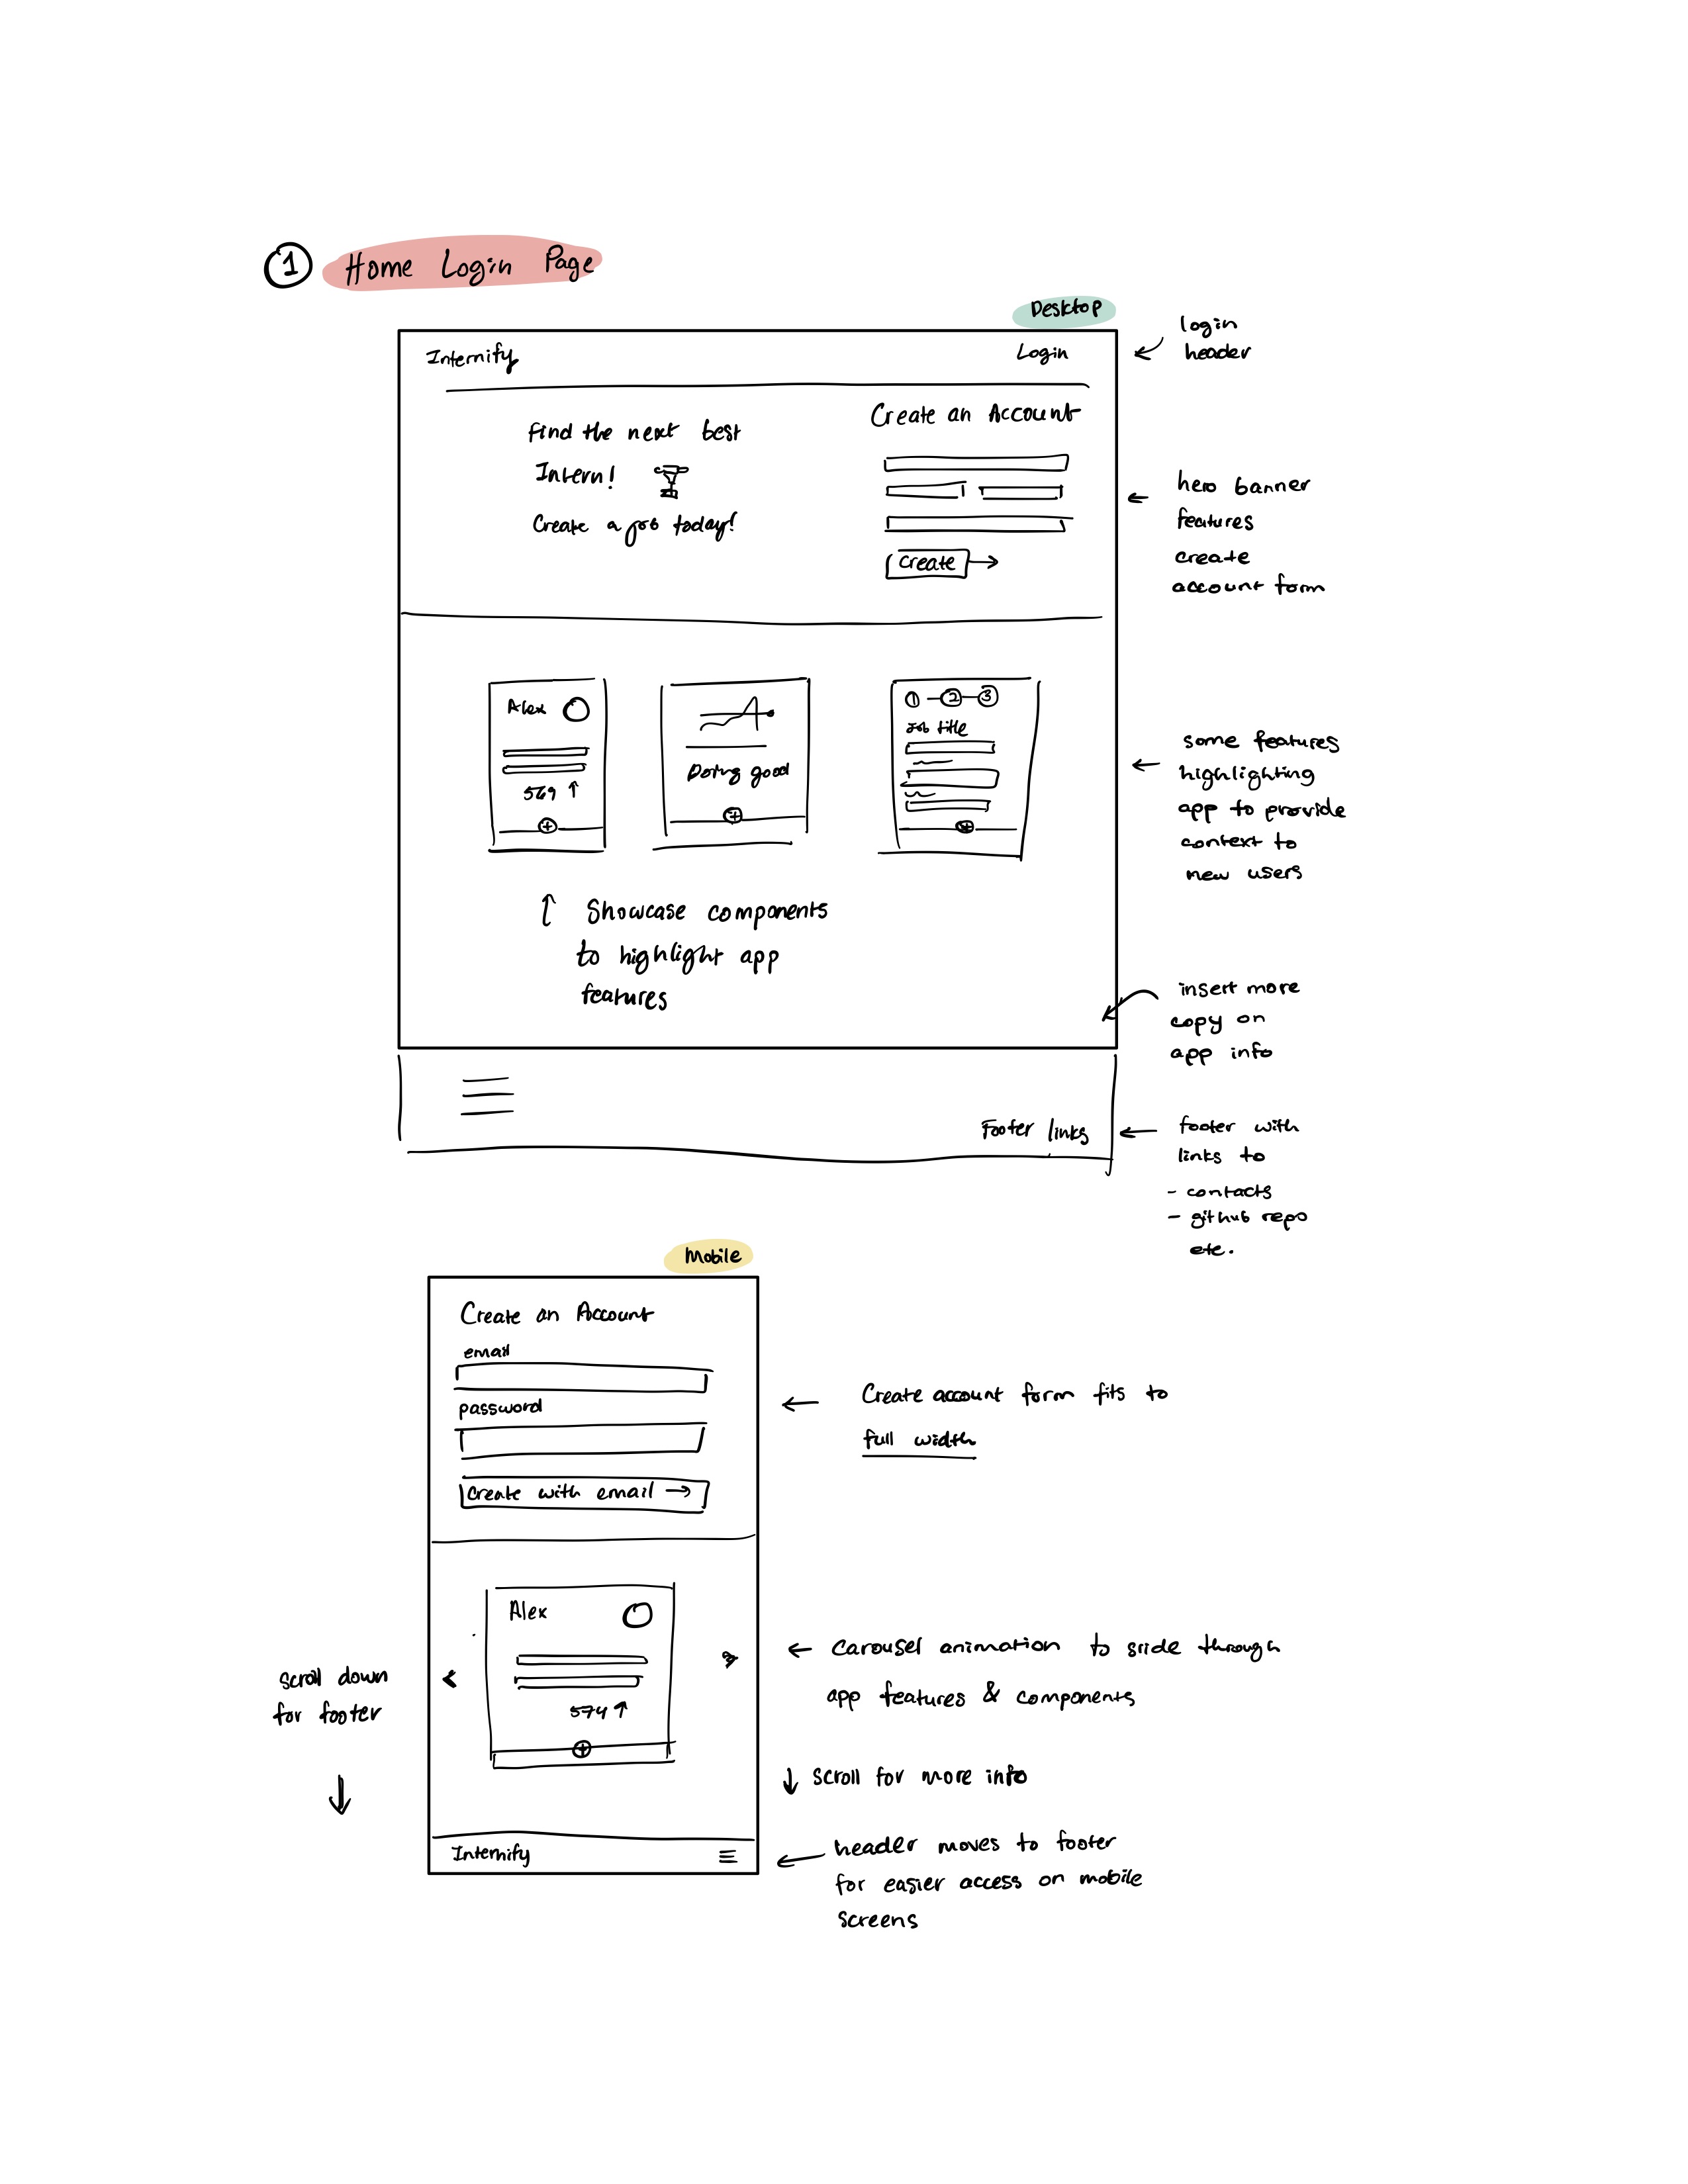 1 Home Login Page
Desktop
Internify
Login
login
header
Find the next best
Intern!
Create a job today!
Create an Account
create
hero banner
features
create
account form
Alex
569 ↑
Doing good
1 2 3
Job title
some features
highlighting
app to provide
context to
new users
↑ Showcase components
to highlight app
features
insert more
copy on
app info
Footer links
footer with
links to
- contacts
- github repo
etc.
Mobile
Create an Account
email
password
create with email →
← Create account form fits to
full width
Alex
574 ↑
<
>
← carousel animation to slide through
app features & components
scroll down
for footer
↓
↓ scroll for more info
Internify
← header moves to footer
for easier access on mobile
screens